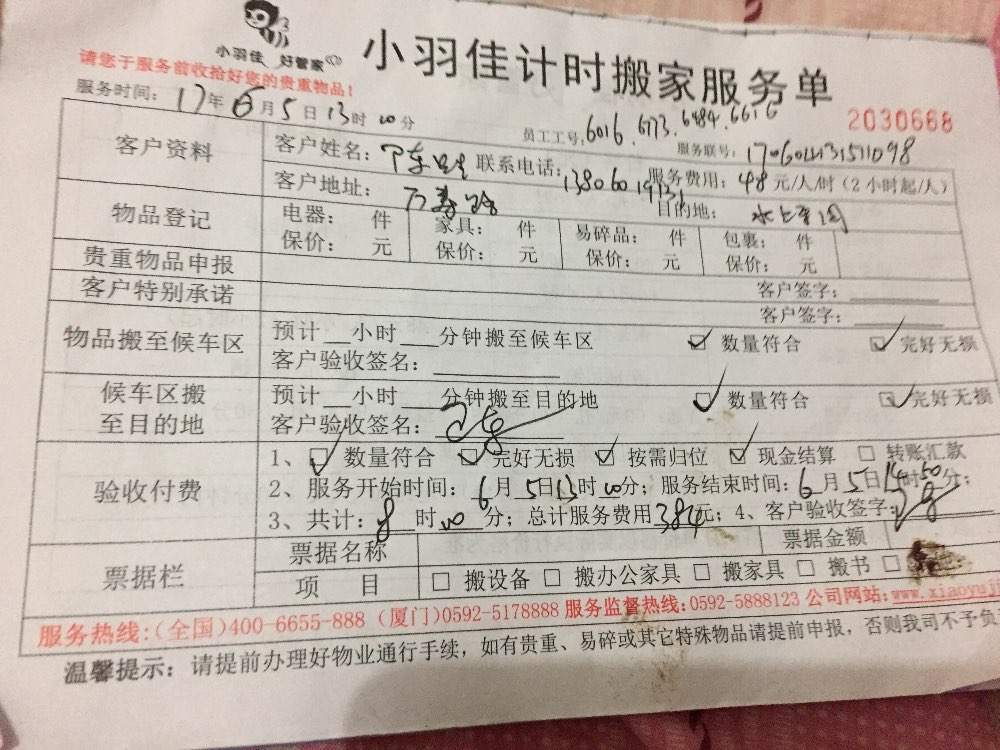 小羽佳 好管家
小羽佳计时搬家服务单
请您于服务前收拾好您的贵重物品!
服务时间: 17年6月5日13时00分
员工工号: 6016.6773.6484.6616
2030668
服务联号:
客户资料
客户姓名: 联系电话: 服务费用: 48元/人/时(2小时起/人)
客户地址: 目的地:
物品登记
电器: 件 家具: 件 易碎品: 件 包裹: 件
保价: 元 保价: 元 保价: 元 保价: 元
贵重物品申报
客户签字:
客户特别承诺
客户签字:
物品搬至候车区
预计 小时 分钟搬至候车区 数量符合 完好无损
客户验收签名:
候车区搬至目的地
预计 小时 分钟搬至目的地 数量符合 完好无损
客户验收签名:
验收付费
1、 数量符合 完好无损 按需归位 现金结算 转账汇款
2、服务开始时间: 6月5日13时00分; 服务结束时间: 6月5日 时50分;
3、共计: 8时00分; 总计服务费用384元; 4、客户验收签字:
票据栏
票据名称 票据金额
项 目 搬设备 搬办公家具 搬家具 搬书
服务热线:(全国)400-6655-888 (厦门)0592-5178888 服务监督热线:0592-5888123 公司网站: www.xiaoyuj
温馨提示: 请提前办理好物业通行手续,如有贵重、易碎或其它特殊物品请提前申报,否则我司不予负